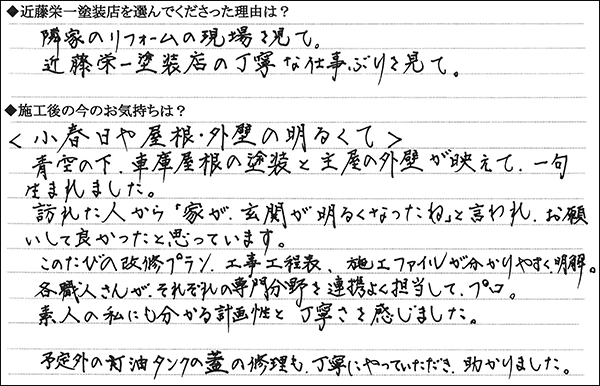 ◆近藤栄一塗装店を選んでくださった理由は？
隣家のリフォームの現場を見て。
近藤栄一塗装店の丁寧な仕事ぶりを見て。
◆施工後の今のお気持ちは？
＜小春日や屋根・外壁の明るくて＞
青空の下、車庫屋根の塗装と主屋の外壁が映えて、一句
生まれました。
訪れた人から「家が、玄関が明るくなったね」と言われ、お願
いして良かったと思っています。
このたびの改修プラン、工事工程表、施工ファイルが分かりやすく明解。
各職人さんが、それぞれの専門分野を連携よく担当して、プロ。
素人の私にも分かる計画性と丁寧さを感じました。
予定外の灯油タンクの蓋の修理も、丁寧にやっていただき、助かりました。